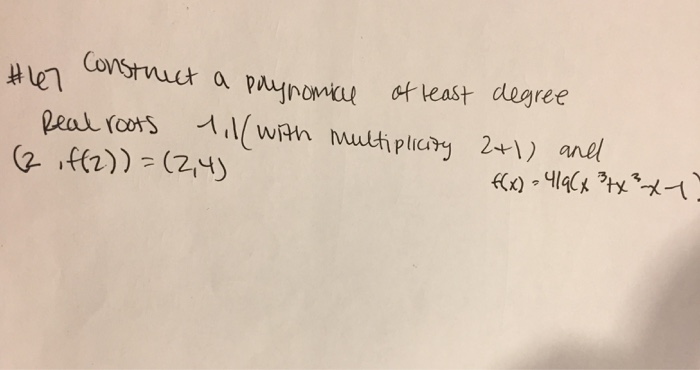 #67 Construct a polynomial of least degree
Real roots -1,1 (with multiplicity 2+1) and
(2, f(2)) = (2,4)
f(x) = 4/9(x³+x³-x-1)